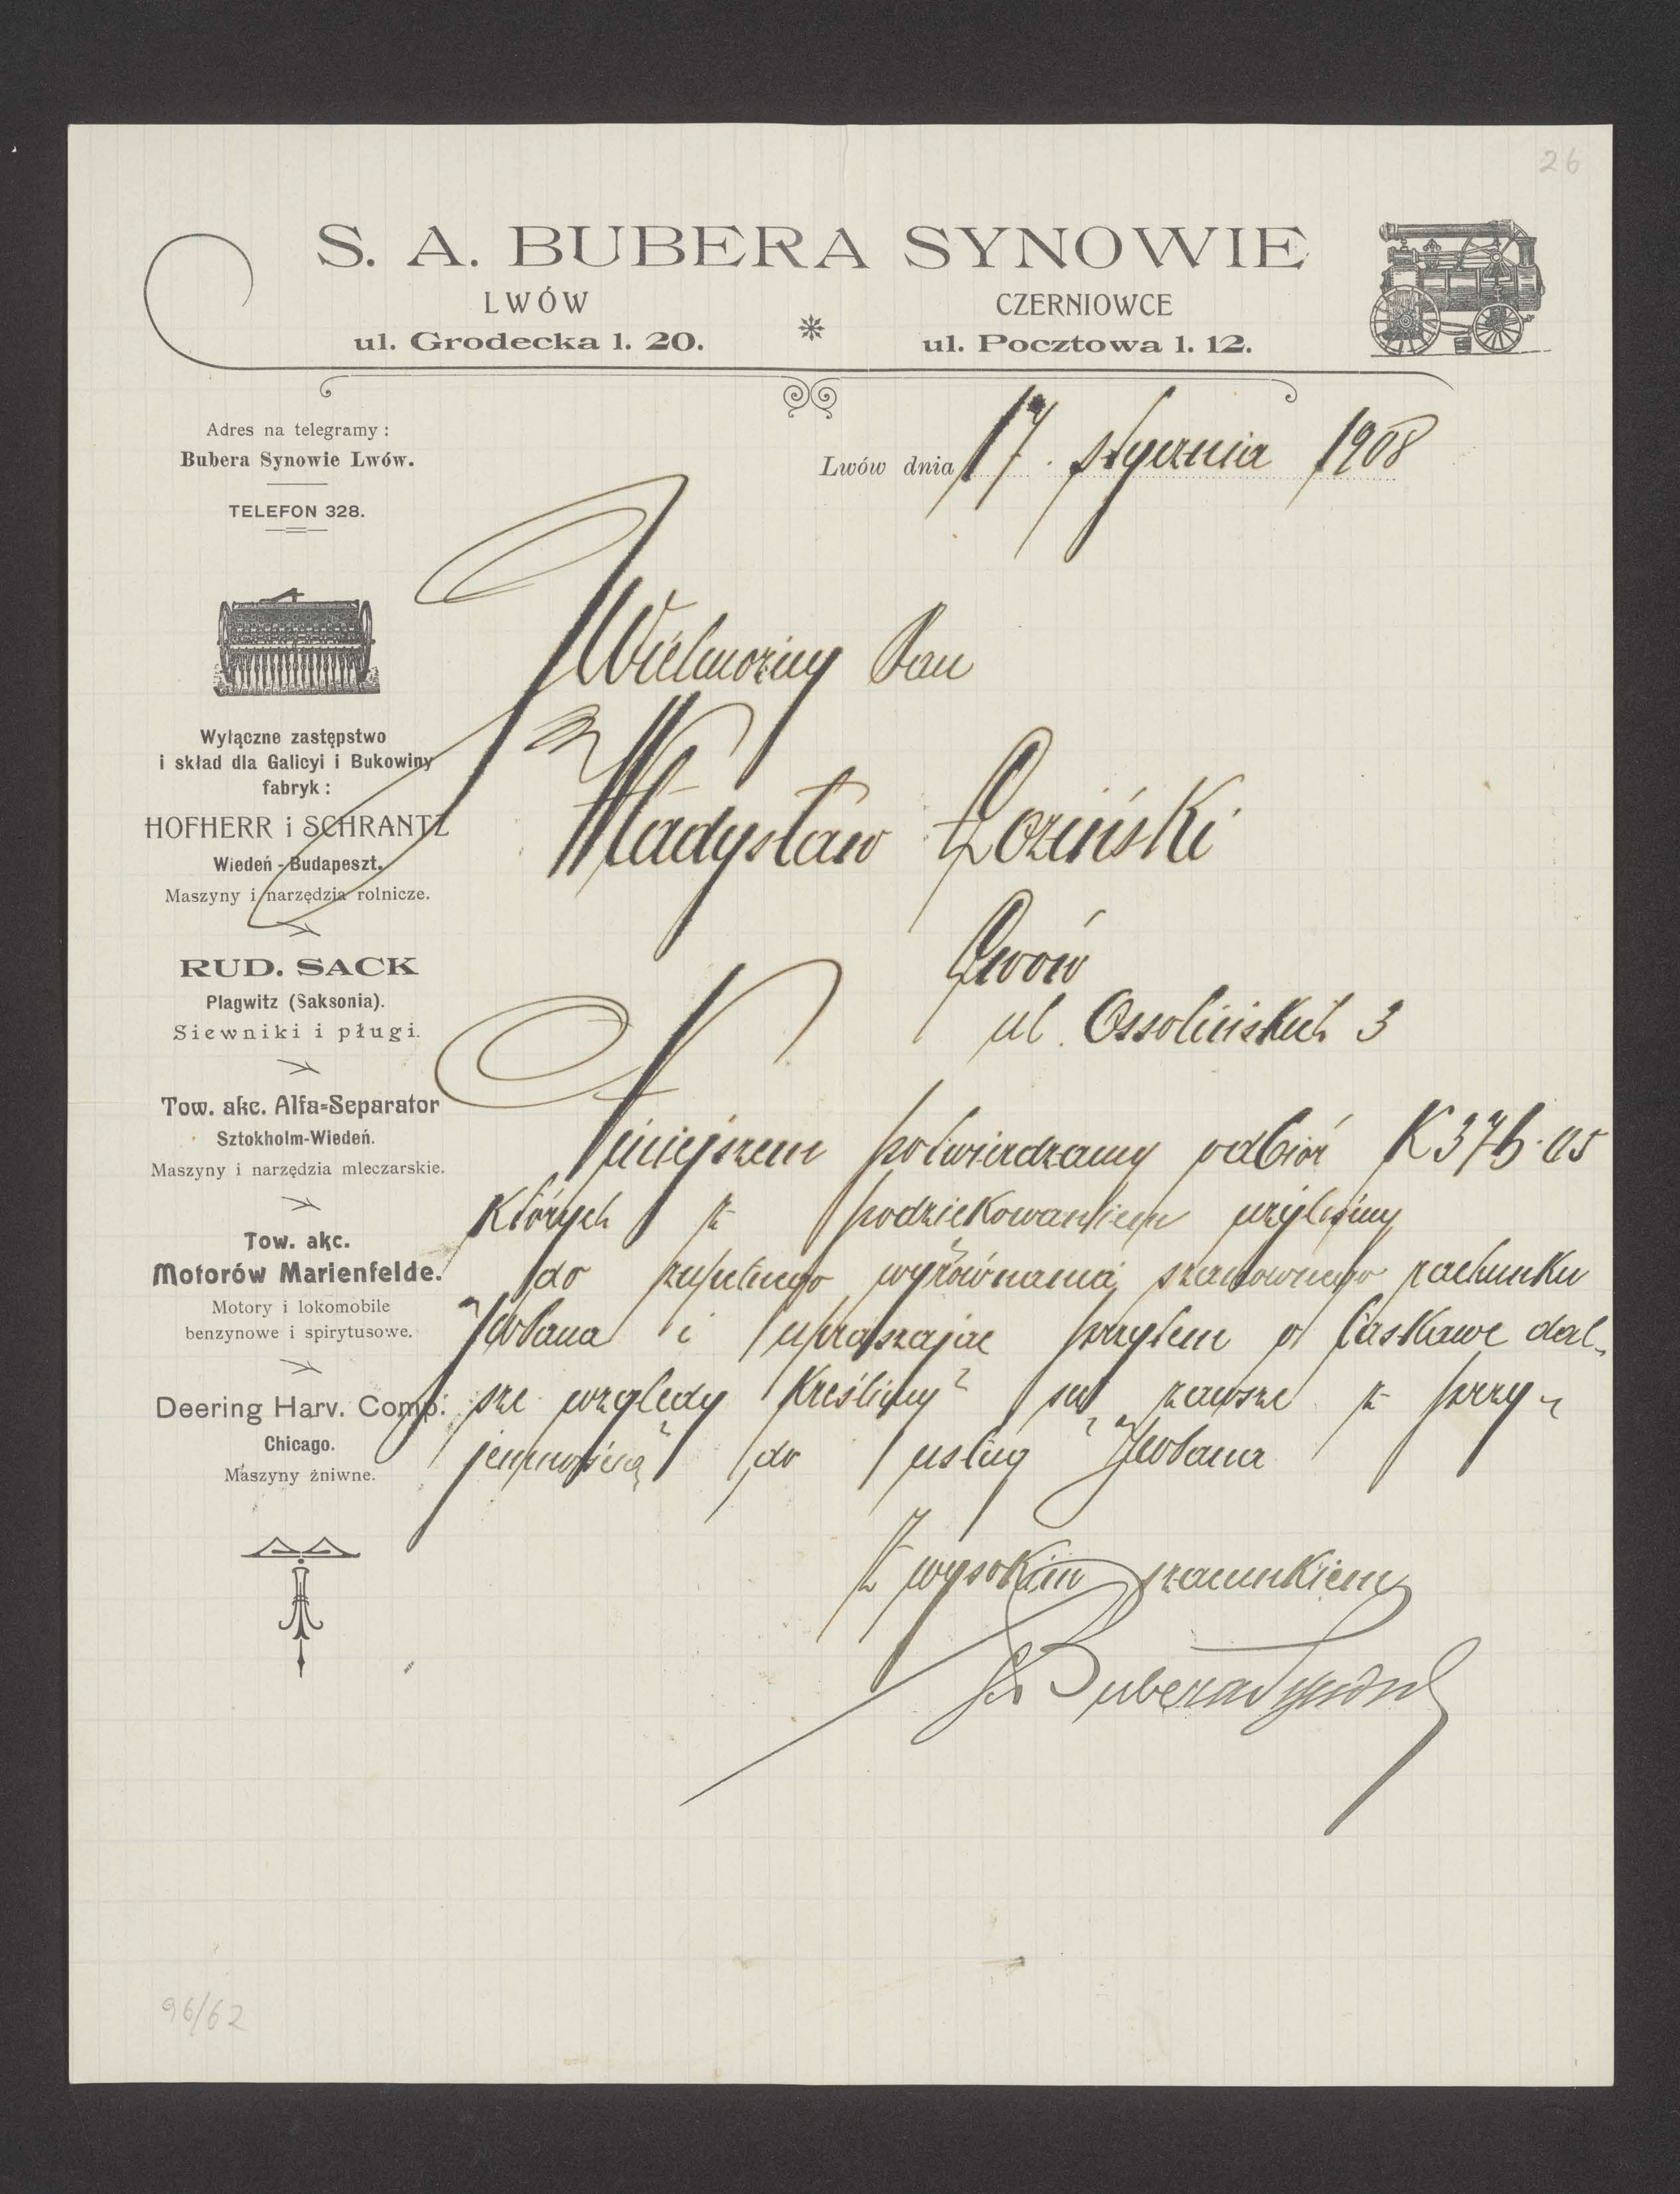 26
S. A. BUBERA SYNOWIE
LWÓW
ul. Grodecka l. 20.
CZERNIOWCE
ul. Pocztowa l. 12.
Adres na telegramy:
Bubera Synowie Lwów.
TELEFON 328.
Wyłączne zastępstwo
i skład dla Galicyi i Bukowiny
fabryk:
HOFHERR i SCHRANTZ
Wiedeń - Budapeszt.
Maszyny i narzędzia rolnicze.
RUD. SACK
Plagwitz (Saksonia).
Siewniki i pługi.
Tow. akc. Alfa-Separator
Sztokholm-Wiedeń.
Maszyny i narzędzia mleczarskie.
Tow. akc.
Motorów Marienfelde.
Motory i lokomobile
benzynowe i spirytusowe.
Deering Harv. Comp.
Chicago.
Maszyny żniwne.
Lwów dnia 17. stycznia 1908
JWielmożny Pan
Władysław Łoziński
Lwów
ul. Ossolińskich 3
Niniejszem potwierdzamy odbiór K
których z podziękowaniem użyliśmy
do zupełnego wyrównania szanownego rachunku
JWPana i upraszając przytem o łaskawe dal-
sze względy kreślimy się zawsze z przy-
jemnością do usług JWPana
Z wysokim szacunkiem
S A Bubera Synowie
96/62